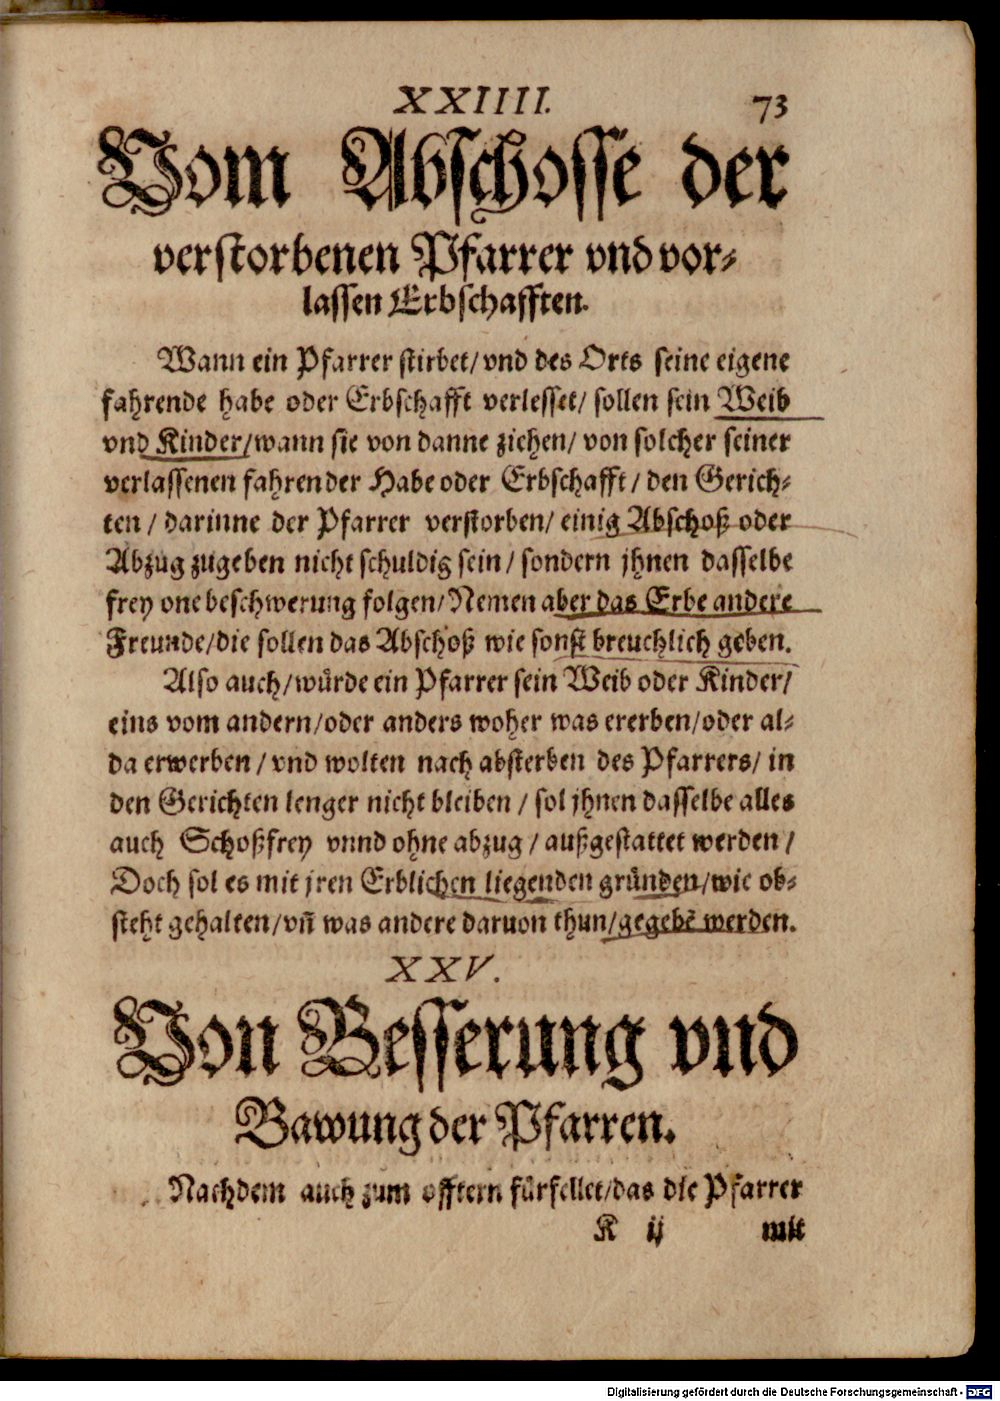 XXIIII.
73
Vom Abschosse der
verstorbenen Pfarrer vnd vor⸗
lassen Erbschafften.
Wann ein Pfarrer stirbet/ vnd des Orts seine eigene
fahrende habe oder Erbschafft verlesset/ sollen sein Weib
vnd Kinder/ wann sie von danne ziehen/ von solcher seiner
verlassenen fahrender Habe oder Erbschafft/ den Gerich⸗
ten/ darinne der Pfarrer verstorben/ einig Abschoß oder
Abzug zugeben nicht schuldig sein/ sondern jhnen dasselbe
frey one beschwerung folgen/ Nemen aber das Erbe andere
Freunde/ die sollen das Abschoß wie sonst breuchlich geben.
Also auch/ würde ein Pfarrer sein Weib oder Kinder/
eins vom andern/ oder anders woher was ererben/ oder al⸗
da erwerben/ vnd wolten nach absterben des Pfarrers/ in
den Gerichten lenger nicht bleiben/ sol jhnen dasselbe alles
auch Schoßfrey vnnd ohne abzug/ außgestattet werden/
Doch sol es mit jren Erblichen liegenden gründen/ wie ob⸗
steht gehalten/ vñ was andere daruon thun/ gegebẽ werden.
XXV.
Von Besserung vnd
Bawung der Pfarren.
Nachdem auch zum offtern fürfellet/ das die Pfarrer
K ij
mit
Digitalisierung gefördert durch die Deutsche Forschungsgemeinschaft - DFG